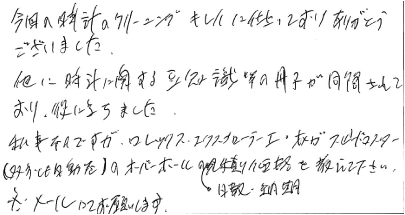 今回の時計のクリーニング キレイに仕上っており ありがとう
ございました.
他に時計に関する 豆知識等の冊子が同封されて
おり、役に立ちました.
私事ですが、ロレックス・エクスプローラーⅠ・オメガ スピードマスター
(自動巻)のオーバーホールの見積り価格を教えて下さい.
日数・納期
又、メールにてお願いします.